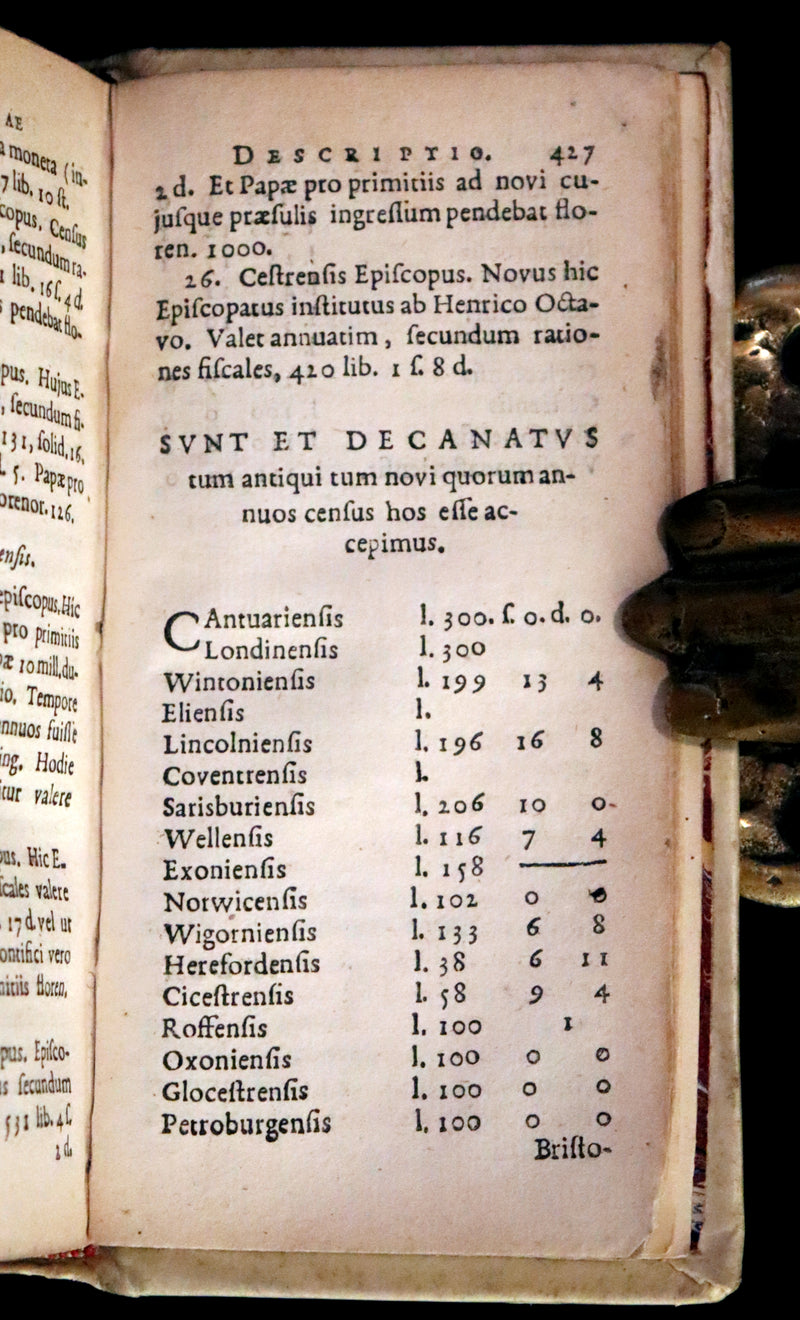 AE
a moneta (in-
7 lib. 10 ſt.
copus. Cenſus
, ſecundum ra-
1 lib. 16ſ. 4 d
s pendebat flo-
pus. Hujus E.
, ſecundum fi-
131, ſolid. 16.
. 5. Papæ pro
orenor. 126.
enſis.
epiſcopus. Hic
pro primitiis
æ 10 mill. du-
io. Tempore
nnuos fuiſſe
ing. Hodie
tur valere
us. Hic E.
cales valere
17 d. vel ut
ontifici vero
nitiis floren.
pus. Epiſco-
s ſecundum
531 lib. 4ſ.
2 d.
DESCRIPTIO. 427
2 d. Et Papæ pro primitiis ad novi cu-
juſque præſulis ingreſſum pendebat flo-
ren. 1000.
26. Ceſtrenſis Epiſcopus. Novus hic
Epiſcopatus inſtitutus ab Henrico Octa-
vo. Valet annuatim, ſecundum ratio-
nes fiſcales, 420 lib. 1 ſ. 8 d.
SVNT ET DECANATVS
tum antiqui tum novi quorum an-
nuos cenſus hos eſſe ac-
cepimus.
CAntuarienſis l. 300. ſ. 0. d. 0.
Londinenſis l. 300
Wintonienſis l. 199 13 4
Elienſis l.
Lincolnienſis l. 196 16 8
Coventrenſis l.
Sarisburienſis l. 206 10 0
Wellenſis l. 116 7 4
Exonienſis l. 158 ———
Norwicenſis l. 102 0 0
Wigornienſis l. 133 6 8
Herefordenſis l. 38 6 11
Ciceſtrenſis l. 58 9 4
Roffenſis l. 100 1
Oxonienſis l. 100 0 0
Gloceſtrenſis l. 100 0 0
Petroburgenſis l. 100 0 0
Briſto-